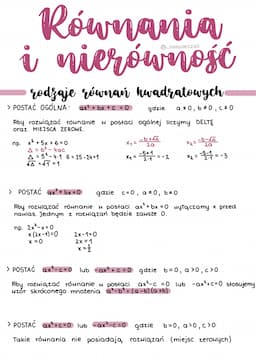 Równania
i nierówność
rodzaje równań kwadratowych
> POSTAĆ OGÓLNA: ax²+bx+c=0 gdzie a≠0, b≠0, c≠0
Aby rozwiązać równanie w postaci ogólnej liczymy DELTĘ
oraz MIEJSCA ZEROWE.
np. x²+5x+6=0 x₁= -b+√Δ/2a x₂= -b-√Δ/2a
Δ = b²-4ac
Δ = 5²-4·1·6=25-24=1 x₁= -5+1/2·1 = -2 x₂= -5-1/2·1 = -3
√Δ = √1 = 1
> POSTAĆ ax²+bx=0 gdzie c=0, a≠0, b≠0
Aby rozwiązać równanie w postaci ax²+bx=0 wyłączamy x przed
nawias. Jednym z rozwiązań będzie zawsze 0.
np. 2x²-x=0
x(2x-1)=0 2x-1=0
x=0 2x=1
x=½
> POSTAĆ ax²-c=0 lub -ax²+c=0 gdzie b=0, a>0, c>0
Aby rozwiązać równanie w postaci ax²-c=0 lub -ax²+c=0 stosujemy
wzór skróconego mnożenia a²-b²=(a-b)(a+b)
> POSTAĆ ax²+c=0 lub -ax²-c=0 gdzie b=0, a>0, c>0
Takie równania nie posiadają rozwiązań (miejsc zerowych)